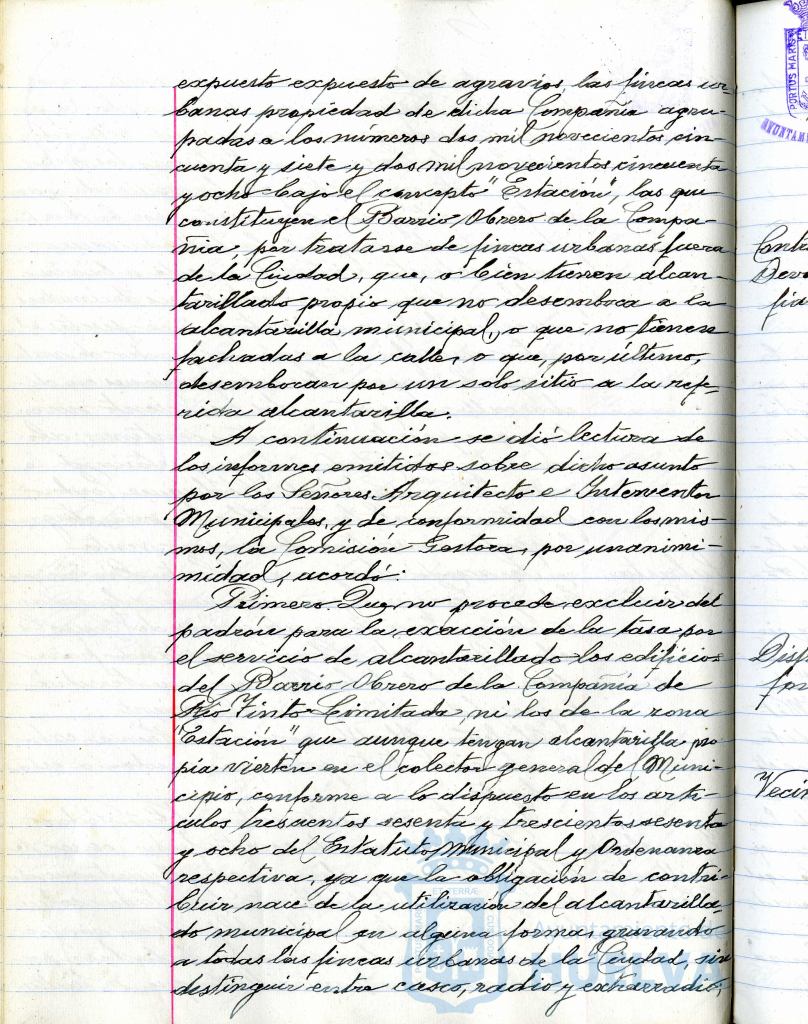 expuesto expuesto de agravios, las fincas ur-
banas propiedad de dicha Compañía agru-
padas a los números dos mil novecientos cin-
cuenta y siete y dos mil novecientos cincuenta
y ocho bajo el concepto "Estación", las que
constituyen el Barrio Obrero de la Compa-
ñía, por tratarse de fincas urbanas fuera
de la Ciudad, que, o bien tienen alcan-
tarillado propio que no desemboca a la
alcantarilla municipal, o que no tienen
fachadas a la calle, o que, por último,
desembocan por un solo sitio a la refe-
rida alcantarilla.
A continuación se dió lectura de
los informes emitidos sobre dicho asunto
por los Señores Arquitecto e Interventor
Municipales, y de conformidad con los mis-
mos, la Comisión Gestora, por unanimi-
midad, acordó:
Primero. Que no procede excluir del
padrón para la exacción de la tasa por
el servicio de alcantarillado los edificios
del Barrio Obrero de la Compañía de
Río Tinto Limitada, ni los de la zona
"Estación" que aunque tengan alcantarilla pro-
pia vierten en el colector general del Muni-
cipio, conforme a lo dispuesto en los artí-
culos trescientos sesenta y trescientos sesenta
y ocho del Estatuto Municipal y Ordenanza
respectiva, ya que la obligación de contri-
buir nace de la utilización del alcantarilla-
do municipal en alguna forma, gravando
a todas las fincas urbanas de la Ciudad, sin
distinguir entre casco, radio y extrarradio;
PORTUS MARIS
AYUNTAM
Contr
Devo
fia
Disp
Vecin
HUELVA